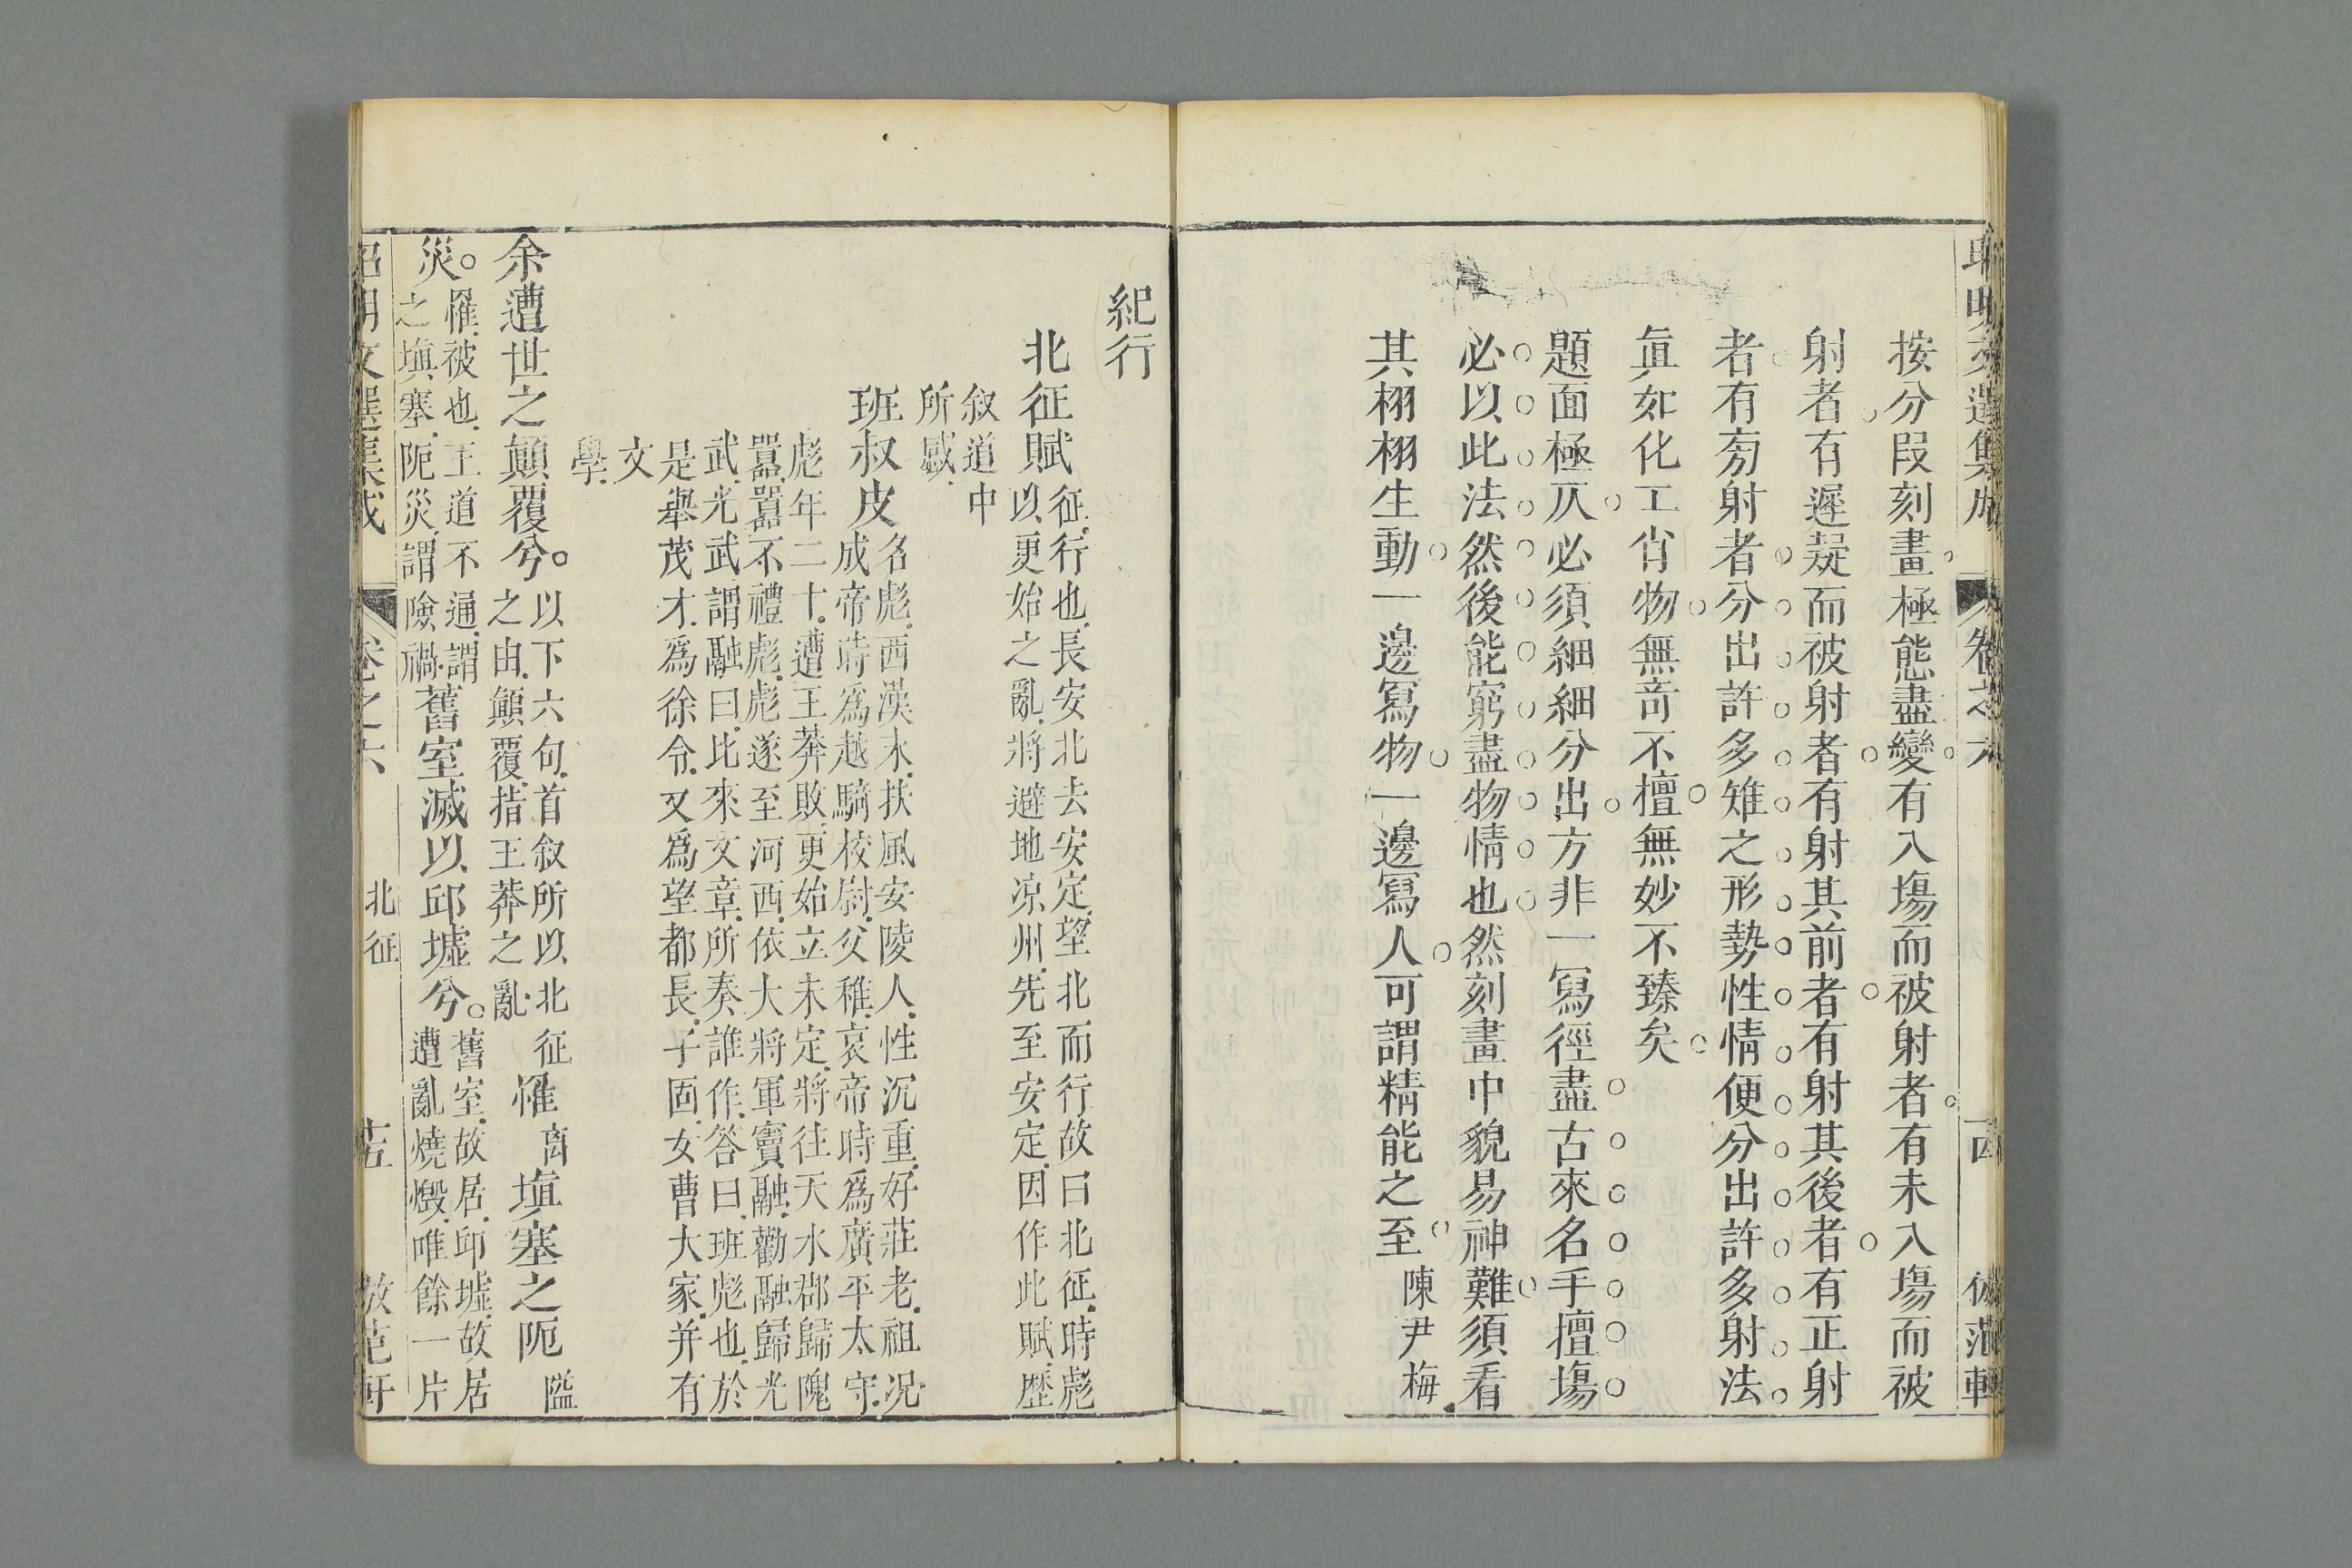 昭明文選集成 卷之六 十四 倣范軒
按分段刻畫極態盡變有入塲而被射者有未入塲而被
射者有遲疑而被射者有射其前者有射其後者有正射
者有旁射者分出許多雉之形勢性情便分出許多射法
眞如化工肖物無竒不檀無妙不臻矣
題面極仄必須細細分出方非一冩徑盡古來名手擅塲
必以此法然後能窮盡物情也然刻畫中貌易神難須看
其栩栩生動一邊冩物一邊冩人可謂精能之至 陳尹梅
紀行
北征賦 征行也長安北去安定望北而行故曰北征時彪
以更始之亂將避地凉州先至安定因作此賦歷
叙道中
所感
班叔皮 名彪西漢末扶風安陵人性沉重好莊老祖况
成帝時爲越騎校尉父稚哀帝時爲廣平太守
彪年二十遭王莽敗更始立未定將往天水郡歸隗
囂囂不禮彪彪遂至河西依大將軍竇融勸融歸光
武光武謂融曰比來文章所奏誰作答曰班彪也於
是舉茂才爲徐令又爲望都長子固女曹大家并有
文
學
余遭世之顛覆兮 以下六句首叙所以北征
之由顛覆指王莽之亂
罹 离 塡塞之阨 隘
災 罹被也王道不通謂
之塡塞阨災謂險禍
舊室滅以邱墟兮 舊室故居邱墟故居
遭亂燒燬唯餘一片
昭明文選集成 卷之六 北征 十五 倣范軒